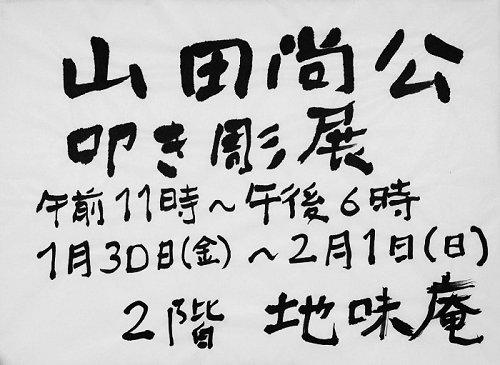 山田尚公
叩き彫展
午前11時～午後6時
1月30日(金)～2月1日(日)
2階 地味庵